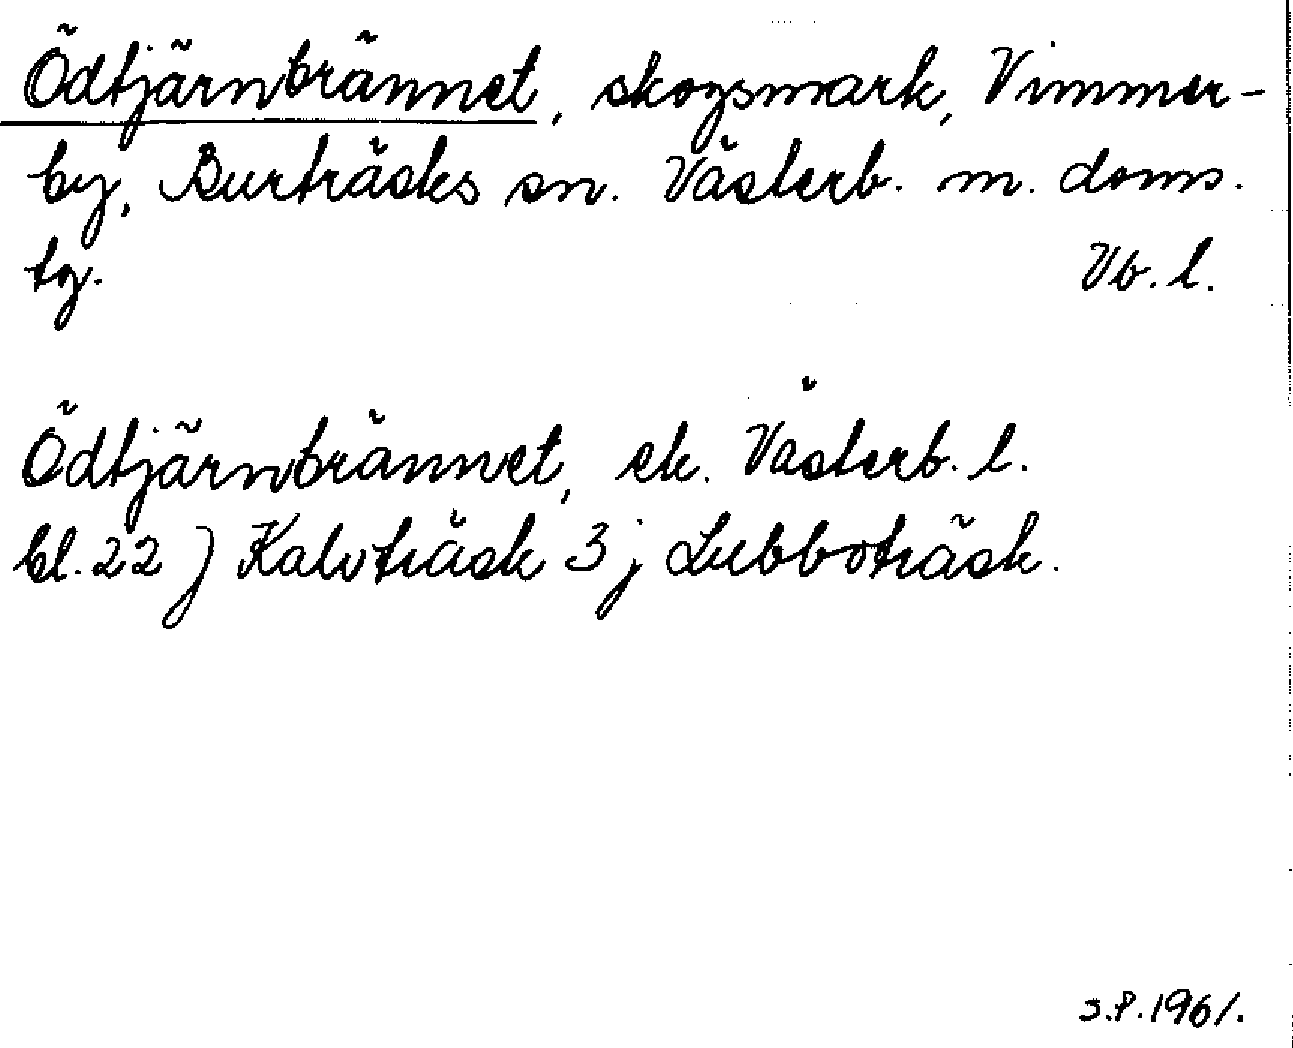 Ödtjärnbrännet, skogsmark, Vimmer-
by, Burträsks sn. Västerb. m. doms.
tg. Vb. l.
Ödtjärnbrännet, ek. Västerb. l.
bl. 22 j Kalvträsk 3 j Lubboträsk.
S.P. 1961.